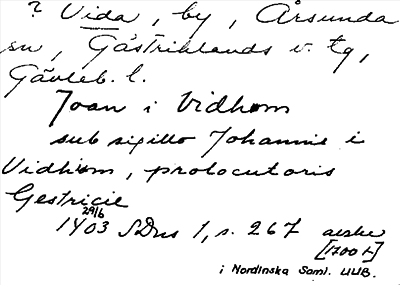 ? Vida, by, Årsunda
sn, Gästriklands v. tg,
Gävleb. l.
Joan i Vidhem
sub sigillo Johannis i
Vidhem, protocutoris
Gestricie
29/6
1403 SDns 1, s. 267 avskr
[1700 t]
i Nordinska Saml. UUB.